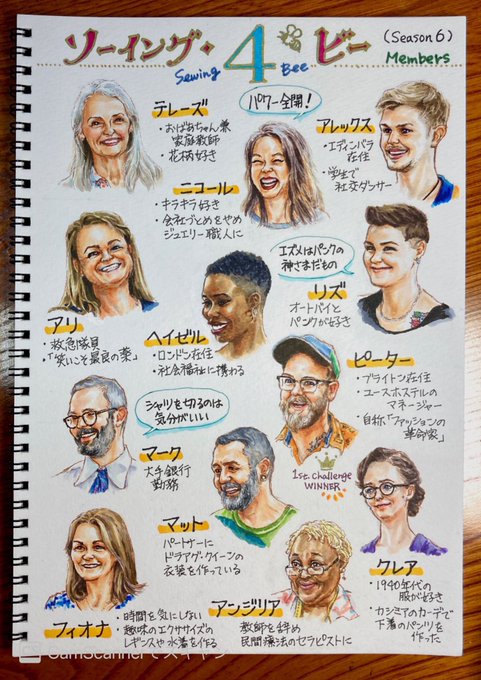 ソーイング・ビー 4 (Season 6)
Sewing Bee Members
テレーズ
・おばあちゃん兼
家庭教師
・花柄好き
パワー全開！
アレックス
・エディンバラ
在住
・学生で
社交ダンサー
ニコール
・キラキラ好き
・会社づとめをやめ
ジュエリー職人に
エズメはパンクの
神さまだもの
リズ
オートバイと
パンクが好き
アリ
・救急隊員
・「笑いこそ最良の薬」
ヘイゼル
・ロンドン在住
・社会福祉に携わる
ピーター
・ブライトン在住
・ユースホステルの
マネージャー
・自称「ファッションの
革命家」
シャツを切るのは
気分がいい
マーク
大手銀行
勤務
1st. Challenge
WINNER
マット
パートナーに
ドラァグ・クイーンの
衣装を作っている
クレア
・1940年代の
服が好き
・カシミアのカーデで
下着のパンツを
作った
フィオナ
・時間を気にしない
・趣味のエクササイズの
レギンスや水着を作る
アンジリア
教師を辞め
民間療法のセラピストに
CamScannerでスキャン